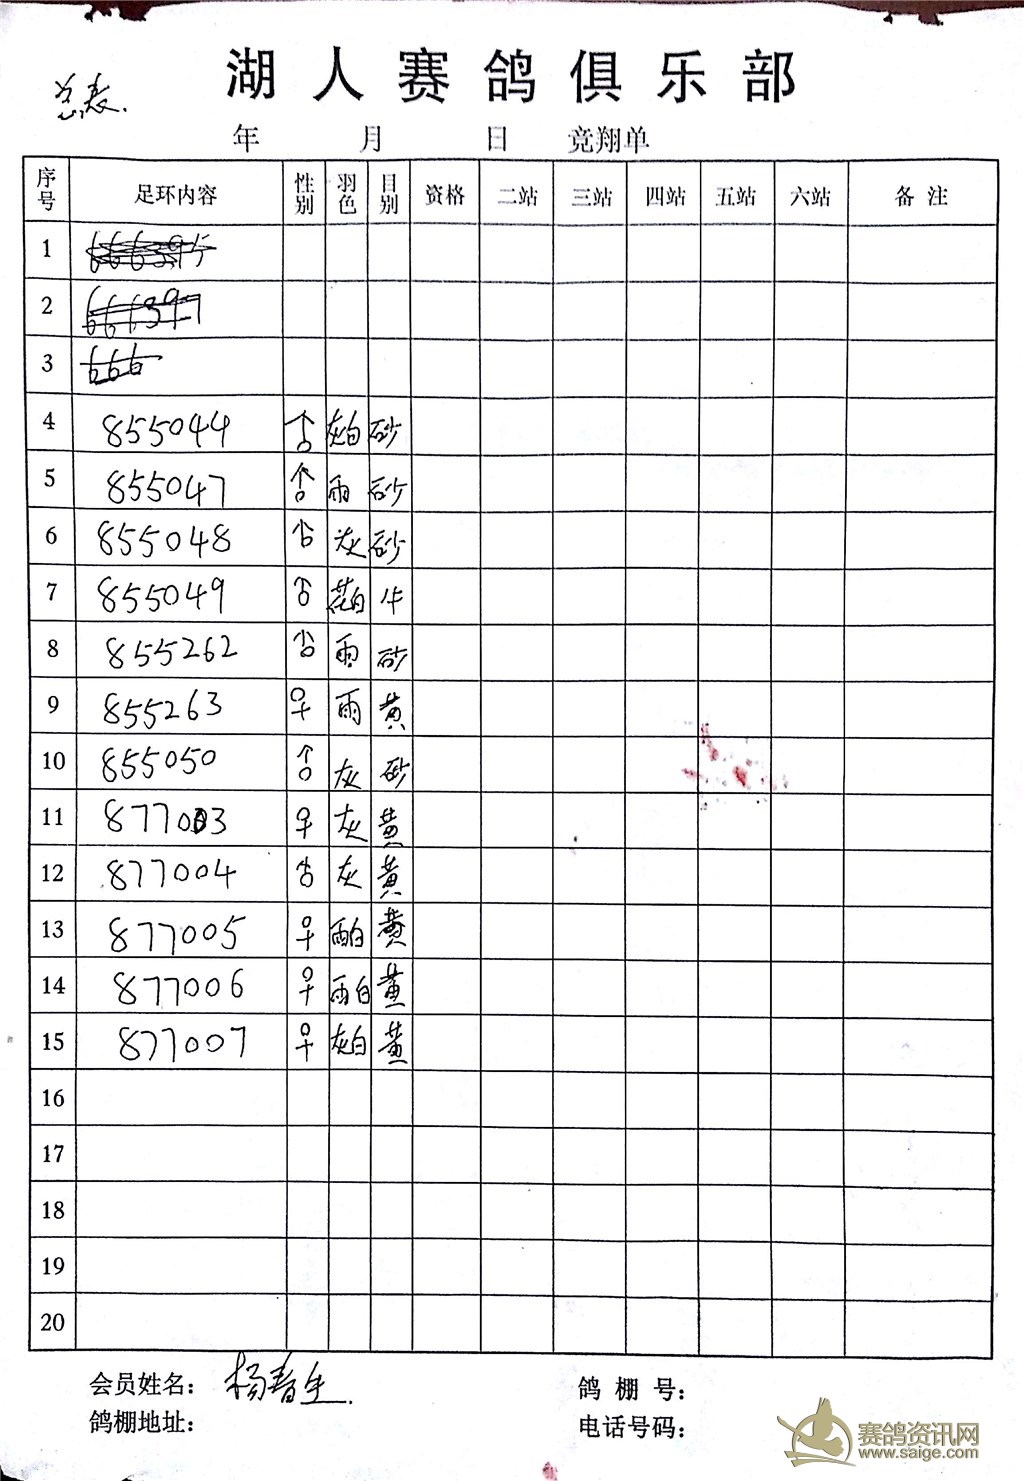 总表.
湖人赛鸽俱乐部
年 月 日 竞翔单
序号 足环内容 性别 羽色 目别 资格 二站 三站 四站 五站 六站 备注
1 666395
2 666397
3 666
4 855044 ♂ 灰白 砂
5 855047 ♂ 雨 砂
6 855048 ♂ 灰 砂
7 855049 ♂ 花白 牛
8 855262 ♂ 雨 砂
9 855263 ♀ 雨 黄
10 855050 ♂ 灰 砂
11 877003 ♀ 灰 黄
12 877004 ♂ 灰 黄
13 877005 ♀ 雨白 黄
14 877006 ♀ 雨白 黄
15 877007 ♀ 灰白 黄
16
17
18
19
20
会员姓名：杨春生. 鸽棚号：
鸽棚地址： 电话号码：
赛鸽资讯网
www.saige.com